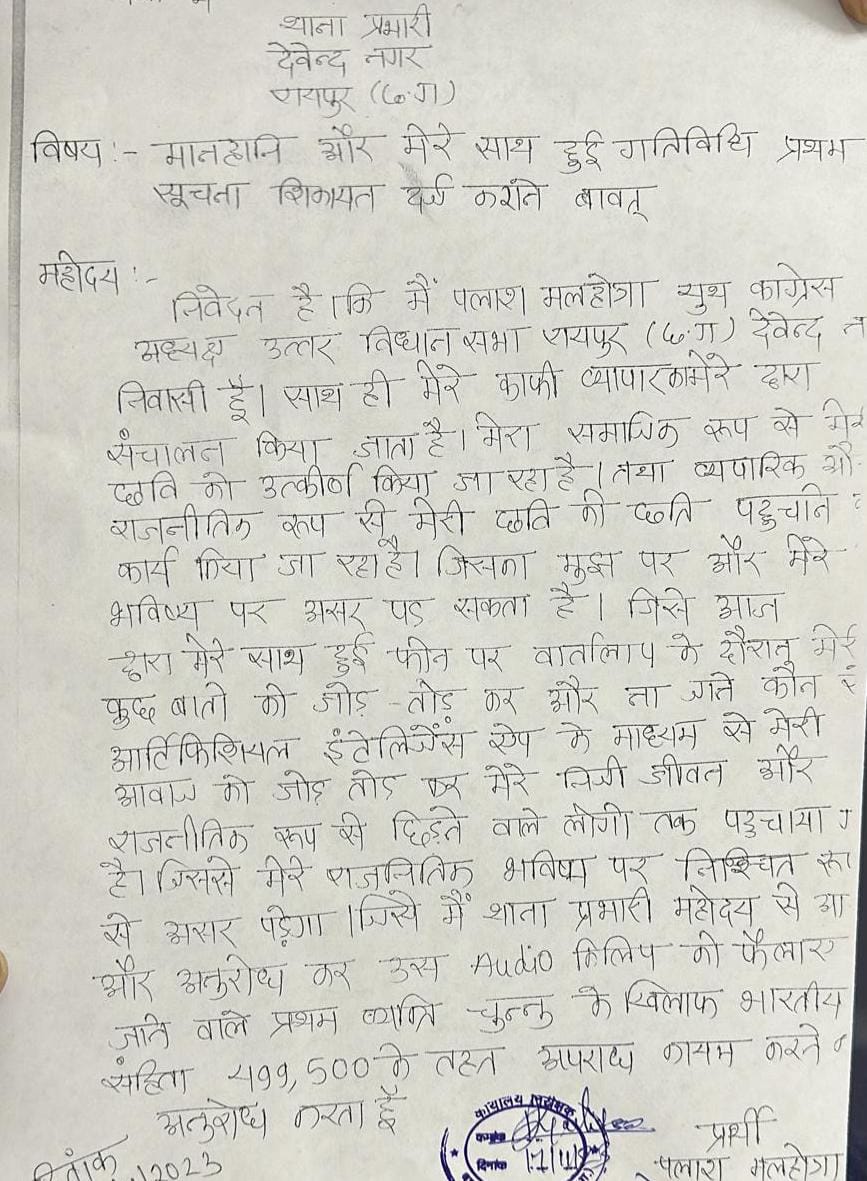 थाना प्रभारी
देवेन्द नगर
रायपुर (छ.ग)
विषय :- मानहानि और मेरे साथ हुई गतिविधि प्रथम
सूचना शिकायत दर्ज कराने बावत्
महोदय :-
निवेदन है। कि मैं पलाश मलहोत्रा युथ कांग्रेस
अध्यक्ष उत्तर विधानसभा रायपुर (छ.ग) देवेन्द न
निवासी हूँ। साथ ही मेरे काफी व्यापार का मेरे द्वारा
संचालन किया जाता है। मेरा समाजिक रूप से मेर
छवि को उत्कीर्ण किया जा रहा है। तथा व्यपारिक औ
राजनीतिक रूप से मेरी छवि को छति पहुचाने
कार्य किया जा रहा है। जिसका मुझ पर और मेरे
भविष्य पर असर पड सकता है। जिसे आज
द्वारा मेरे साथ हुई फोन पर वार्तालाप के दौरान मेरे
कुछ बातो को जोड़ -तोड़ कर और ना जाने कौन
आर्टिफिशियल इंटेलिजेंस ऐप के माध्यम से मेरी
आवाज को जोड़ तोड़ कर मेरे निजी जीवन और
राजनीतिक रूप से छिड़ने वाले लोगो तक पहुचाया ग
है। जिससे मेरे राजनितिक भविष्य पर निश्चित रू
से असर पड़ेगा। जिसे मैं थाना प्रभारी महोदय से आ
और अनुरोध कर उस Audio क्लिप को फैलाए
जाने वाले प्रथम व्यक्ति चुन्नु के खिलाफ भारतीय
संहिता 499,500 के तहत अपराध कायम करने
अनुरोध करता हूँ
कार्यालय
क्रमांक
दिनांक 17/11/
प्रार्थी
पलाश मलहोत्रा
दिनांक
2023